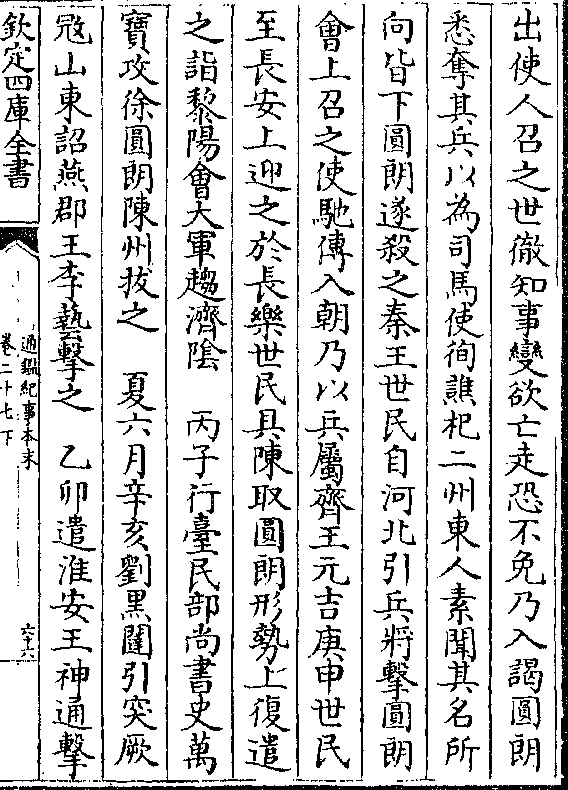 出使人召之世徹知事變欲亡走恐不免乃入謁圓朗
悉奪其兵以為司馬使徇譙杞二州東人素聞其名所
向皆下圓朗遂殺之秦王世民自河北引兵將擊圓朗
會上召之使馳傳入朝乃以兵屬齊王元吉庚申世民
至長安上迎之於長樂世民具陳取圓朗形勢上復遣
之詣黎陽會大軍趨濟隂　丙子行臺民部尚書史萬
寳攻徐圓朗陳州拔之　夏六月辛亥劉黑闥引突厥
宼山東詔燕郡王李藝擊之　乙卯遣淮安王神通擊
欽定四庫全書
通鑑紀事本末
卷二十七下
六十六